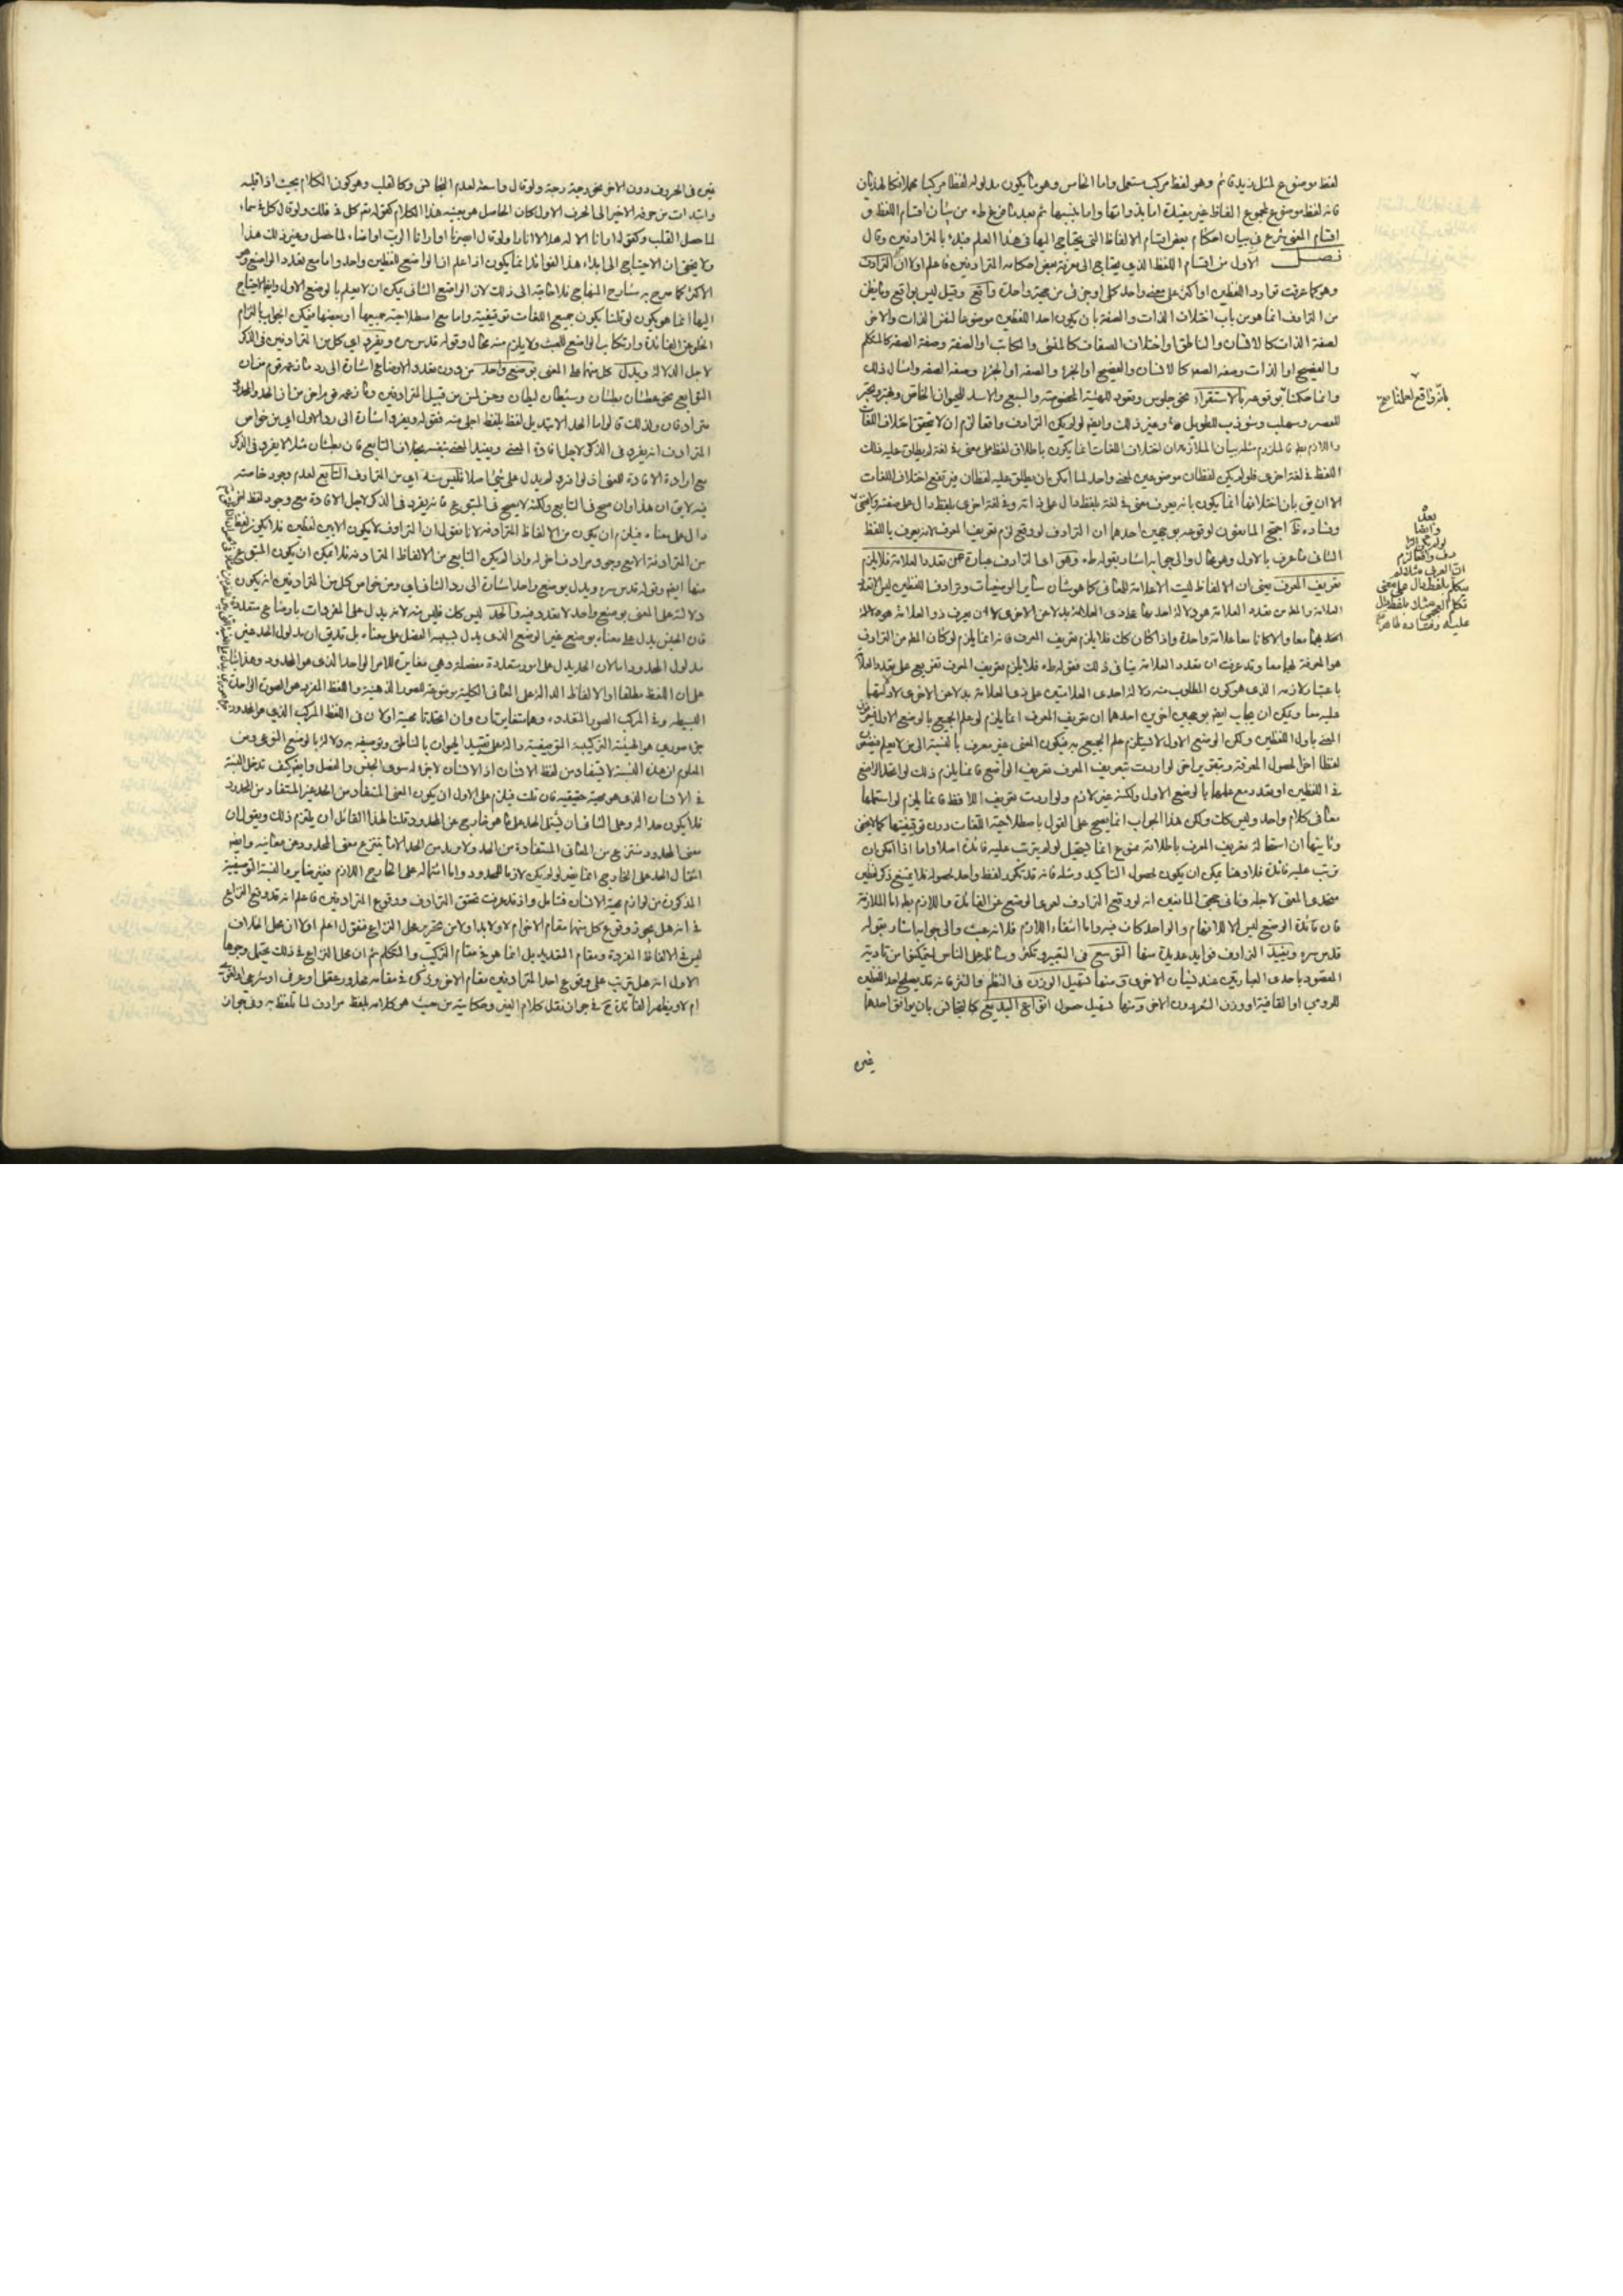 لفظ موضوع لمثل زيد قائم وهو لفظ مركب مستعمل واما الخامس وهو ما يكون مدلوله لفظا مركبا مهملا كالهذيان
فانه لفظ موضوع لمجموع الفاظ غير مفيدة اما بذواتها واما بنسبها ثم بعد ما فرغ طه من بيان اقسام اللفظ و
اقسام المعنى شرع في بيان احكام بعض اقسام الالفاظ التي يحتاج اليها في هذا العلم مبتدء بالمترادفين وقال
فصل الاول من اقسام اللفظ الذي يحتاج الى معرفة بعض احكامه المترادفين فاعلم اولا ان الترادف
وهو كما عرفت توارد اللفظين او اكثر على معنى واحد كلي او جزئي من جهة واحدة واقع وقيل ليس بواقع وما يظن
من الترادف انما هو من باب اختلاف الذات والصفة بان يكون احد اللفظين موضوعا لنفس الذات والاخر
لصفة الذات كالانسان والناطق او اختلاف الصفات كالمنشئ والكاتب او الصفة وصفة الصفة كالمتكلم
والفصيح او الذات وصفة الصفة كالانسان والفصيح او الجزء والصفة او الجزء وصفة الصفة وامثال ذلك
وانما حكمنا بوقوعه بالاستقراء نحو جلوس وقعود للهيئة المخصوصة والسبع والاسد للحيوان الخاص
وصهلب وشوذب للطويل وغير ذلك وايضا لو لم يكن الترادف واقعا لزم ان لا يتحقق اختلاف اللغات
واللازم بط فالملزوم مثله بيان الملازمة ان اختلاف اللغات انما يكون باطلاق لفظ على معنى في لغة لم يطلق عليه ذلك
اللفظ في لغة اخرى فلو لم يكن لفظان موضوعين لمعنى واحد لما امكن ان يطلق عليه لفظان فيرتفع اختلاف اللغات
الا ان يق بان اختلافها انما يكون بانه يعرف معنى في لغة بلفظ دال على ذاته وفي لغة اخرى بلفظ دال على صفته
وفساده ظ احتج المانعون لوقوعه بوجهين احدهما ان الترادف لو وقع لزم تعريف المعرف لانه يعرف باللفظ
الثاني ما عرف بالاول وهو محال والى جوابه اشار بقوله طه وهو اي الترادف عبارة عن تعدد العلامة فلا يلزم
تعريف المعرف يعني ان الالفاظ ليست الا علامة للمعاني كما هو شان سائر الوضعيات وترادف اللفظين ليس الا تعدد
العلامة
احدهما معا والا كانا معا علامة واحدة واذا كان كك فلا يلزم تعريف المعرف فانه انما يلزم لو كان المط من الترادف
هو المعرفة بهما معا وقد عرفت ان تعدد العلامة ينافي ذلك فقوله طه فلا يلزم تعريف المعرف تفريع على تعدد العلامة
باعتبار لازمه الذي هو كون المطلوب منه دلالة احدى العلامتين على ذي العلامة بدلا عن الاخرى
عليه معا ويمكن ان يجاب ايضا بوجهين اخرين احدهما ان تعريف المعرف انما يلزم لو علم الجميع بالوضع الاول
المعنى باول اللفظين ولكن الوضع الاول لا يستلزم علم الجميع به فيكون المعنى غير معرف بالنسبة الى من لا يعلم
لفظا اخر لحصول المعرفة وبتقرير اخر لو اردت بتعريف المعرف تعريف الواضع فانما يلزم ذلك لو اتحد الواضع
في اللفظين او تعدد مع علمه بالوضع الاول ولكنه غير لازم ولو اردت تعريف اللافظ فانما يلزم لو استعملها
معا في كلام واحد وليس كك ولكن هذا الجواب انما يصح على القول باصطلاحية اللغات دون توقيفيتها كما لا يخفى
وثانيهما ان استحالة تعريف المعرف باطلاقه ممنوع انما يستحيل لو لم يترتب عليه فائدة اصلا واما اذا امكن ان
يترتب عليه فائدة فلا وهنا يمكن ان يكون لحصول التاكيد ومثله فانه قد يتكرر لفظ واحد لحصوله فلا يمتنع ذكر لفظين
متحدي المعنى لاجله وثاني حجتي المانعين انه لو وقع الترادف لعرى الوضع عن الفائدة واللازم بط اما الملازمة
فان فائدة الوضع ليس الا الافهام والواحد كاف فيه واما انتفاء اللازم فلانه عبث والى جوابه اشار بقوله
قدس سره ويفيد الترادف فوايد عديدة منها التوسع في التعبير وتكثير وسائله على الناس ليتمكنوا من تادية
المقصود باحدى العبارتين عند نسيان الاخرى ومنها تسهيل الوزن في النظم والنثر فانه قد يصلح احد اللفظين
للروي او القافية او وزن الشعر دون الاخر ومنها تسهيل حصول انواع البديع كالتجانس بان يوافق احدهما
غيره
بعد
وايضا
لو لم يكن الترا
دف واقعا لزم
ان العربي مثلا لو
تكلم بلفظ دال على معنى
تكلم العجمي مثلا بلفظ دال
عليه وفساده ظاهر
غيره في الحروف دون الاخر نحو رحبة رحبة ولو قال واسعة لعدم التجانس وكالقلب وهو كون الكلام بحيث اذا قلبته
وابتدات من حرفه الاخير الى الحرف الاول كان الحاصل هو بعينه هذا الكلام كقوله تع كل في فلك ولو قال كل في سماء
لما حصل القلب وكقوله ارانا الاله هلالا انارا ولو قال ابصرنا او ارانا الرب او اضاء لما حصل وغير ذلك هذا
ولا يخفى ان الاحتياج الى ابداء هذا الفوائد انما يكون اذا علم ان الواضع للفظين واحد واما مع تعدد الواضع وهو
الاكثر كما صرح به شارح المنهاج فلا حاجة الى ذلك لان الواضع الثاني يمكن ان لا يعلم بالوضع الاول وايضا الاحتياج
اليها انما هو يكون لو قلنا بكون جميع اللغات توقيفية واما مع اصطلاحية جميعها او بعضها فيمكن الجواب بالتزام
الخلو عن الفائدة وارتكاب الواضع للعبث ولا يلزم منه محال وقوله قدس سره ويفرد اي كل من المترادفين في الذكر
لاجل الدلالة ويدل كل منهما على المعنى بوضع واحد من دون تعدد الاوضاع اشارة الى رد ما زعمه قوم من ان
التوابع نحو عطشان نطشان وشيطان ليطان وحسن بسن من قبيل المترادفين وما زعمه قوم اخر من ان الحد والمحدود
مترادفان ولذلك قالوا ما الحد الا تبديل لفظ بلفظ اجلى منه فقوله ويفرد اشارة الى رد الاول اي من خواص
المترادف انه يفرد في الذكر لاجل افادة المعنى ويفيد المعنى بنفسه بخلاف التابع فان نطشان مثلا لا يفرد في الذكر
مع ارادة الافادة للمعنى اذ لو افرد لم يدل على شئ اصلا فليس منه اي من الترادف التابع لعدم وجود خاصته
فيه لا يق ان هذا وان صح في التابع ولكنه لا يصح في المتبوع فانه يفرد في الذكر لاجل الافادة مع وجود لفظ اخر
دال على معناه فيلزم ان يكون من الالفاظ المترادفة لانا نقول ان الترادف لا يكون الا بين لفظين فلا يكون لفظ
من المترادفة الا مع وجود مرادف اخر له واذا لم يكن التابع من الالفاظ المترادفة فلا يمكن ان يكون المتبوع
منها ايضا وقوله قدس سره ويدل بوضع واحد اشارة الى رد الثاني اي ومن خواص كل من المترادفين انه يكون
دلالته على المعنى بوضع واحد لا تعدد فيه والحد ليس كك فليس منه لانه يدل على المفردات باوضاع متعددة
فان الجنس يدل على معناه بوضع غير الوضع الذي يدل بسببه الفصل على معناه بل قد يق ان مدلول الحد غير
مدلول المحدود اما لان الحد يدل على امور متعددة مفصلة وهي مغايرة للامر الواحد الذي هو المحدود وهذا بناء
على ان اللفظ مطلقا او الالفاظ الدالة على المعاني الكلية موضوعة للصور الذهنية واللفظ المفرد هو الصورة الواحدة
البسيطة وفي المركب الصور المتعددة وهما متغايرتان وان اتحدتا بحسب او لان في اللفظ المركب الذي هو المحدود
جزء صوري هو الهيئة التركيبية التوصيفية والدال على تقييد الحيوان بالناطق وتوصيفه به دلالة بالوضع النوعي ومن
المعلوم ان هذه النسبة لا تستفاد من لفظ الانسان اذ الانسان لا جزء له سوى الجنس والفصل وايضا كيف تدخل النسبة
في الانسان الذي هو جهة حقيقية فان قلت فيلزم على الاول ان يكون المعنى المستفاد من الحد غير المستفاد من المحدود
فلا يكون حدا له وعلى الثاني ان يشتمل الحد على ما هو خارج عن المحدود قلنا لهذا القائل ان يلتزم ذلك ويقول ان
معنى المحدود منتزع من المعاني المستفادة من الحد ولا يراد من الحد الا ما ينتزع معنى المحدود عن معانيه وايضا
اشتمال الحد على الخارج انما يضر لو لم يكن لازما للمحدود واما اشتماله على الخارج اللازم فغير ضاير والنسبة التوصيفية
المذكورة من لوازم الانسان فتامل واذ قد عرفت تحقق الترادف ووقوع المترادفين فاعلم انه قد وقع النزاع
في انه هل يجوز وقوع كل منهما مقام الاخر ام لا ولا بد اولا من تحرير محل النزاع فنقول اعلم اولا ان محل الخلاف
ليس في الالفاظ المفردة ومقام التعديد بل انما هو في مقام التركيب والتكلم ثم ان محل النزاع في ذلك يحتمل وجوها
الاول انه هل يترتب على وقوع احد المترادفين مقام الاخر وذكره في مقامه محذور عقلي او عرفي او شرعي او لغوي
ام لا ويظهر الفائدة ح في جواز نقل كلام الغير وحكايته من حيث هو كلامه بلفظ مرادف لما تلفظ به وفي جواز